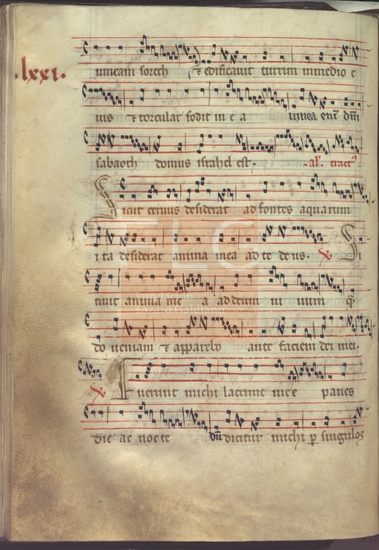 .lxxi.
uineam sorech & edificauit turrim in medio e
ius & torcular fodit in e a uinea eni dni
sabaoth domus israhel est. al. tract
Sicut ceruus desiderat ad fontes aquarum
ita desiderat anima mea ad te deus. Si
tiuit anima me a ad deum ui uum
do ueniam & apparebo ante faciem dei mei
Fuerunt michi lacrime mee panes
die ac nocte dum dicitur michi p singulos